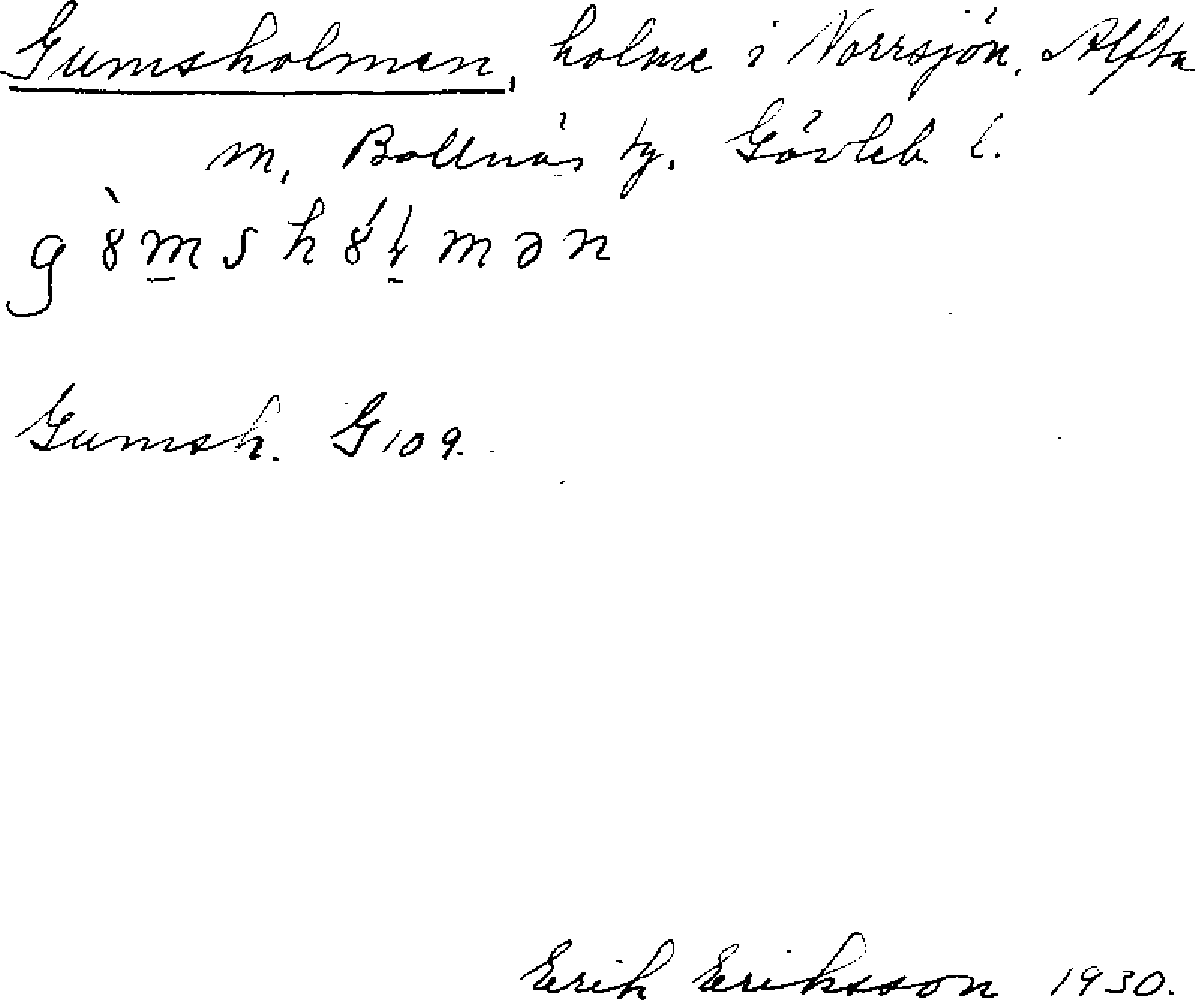 Gumsholmen, holme i Norrsjön, Alfta
m, Bollnäs tg. Gävleb l.
g 8̀ m̲ s h 8́ ł̲ m ə n
Gumsh. G 109.
Erik Eriksson 1930.